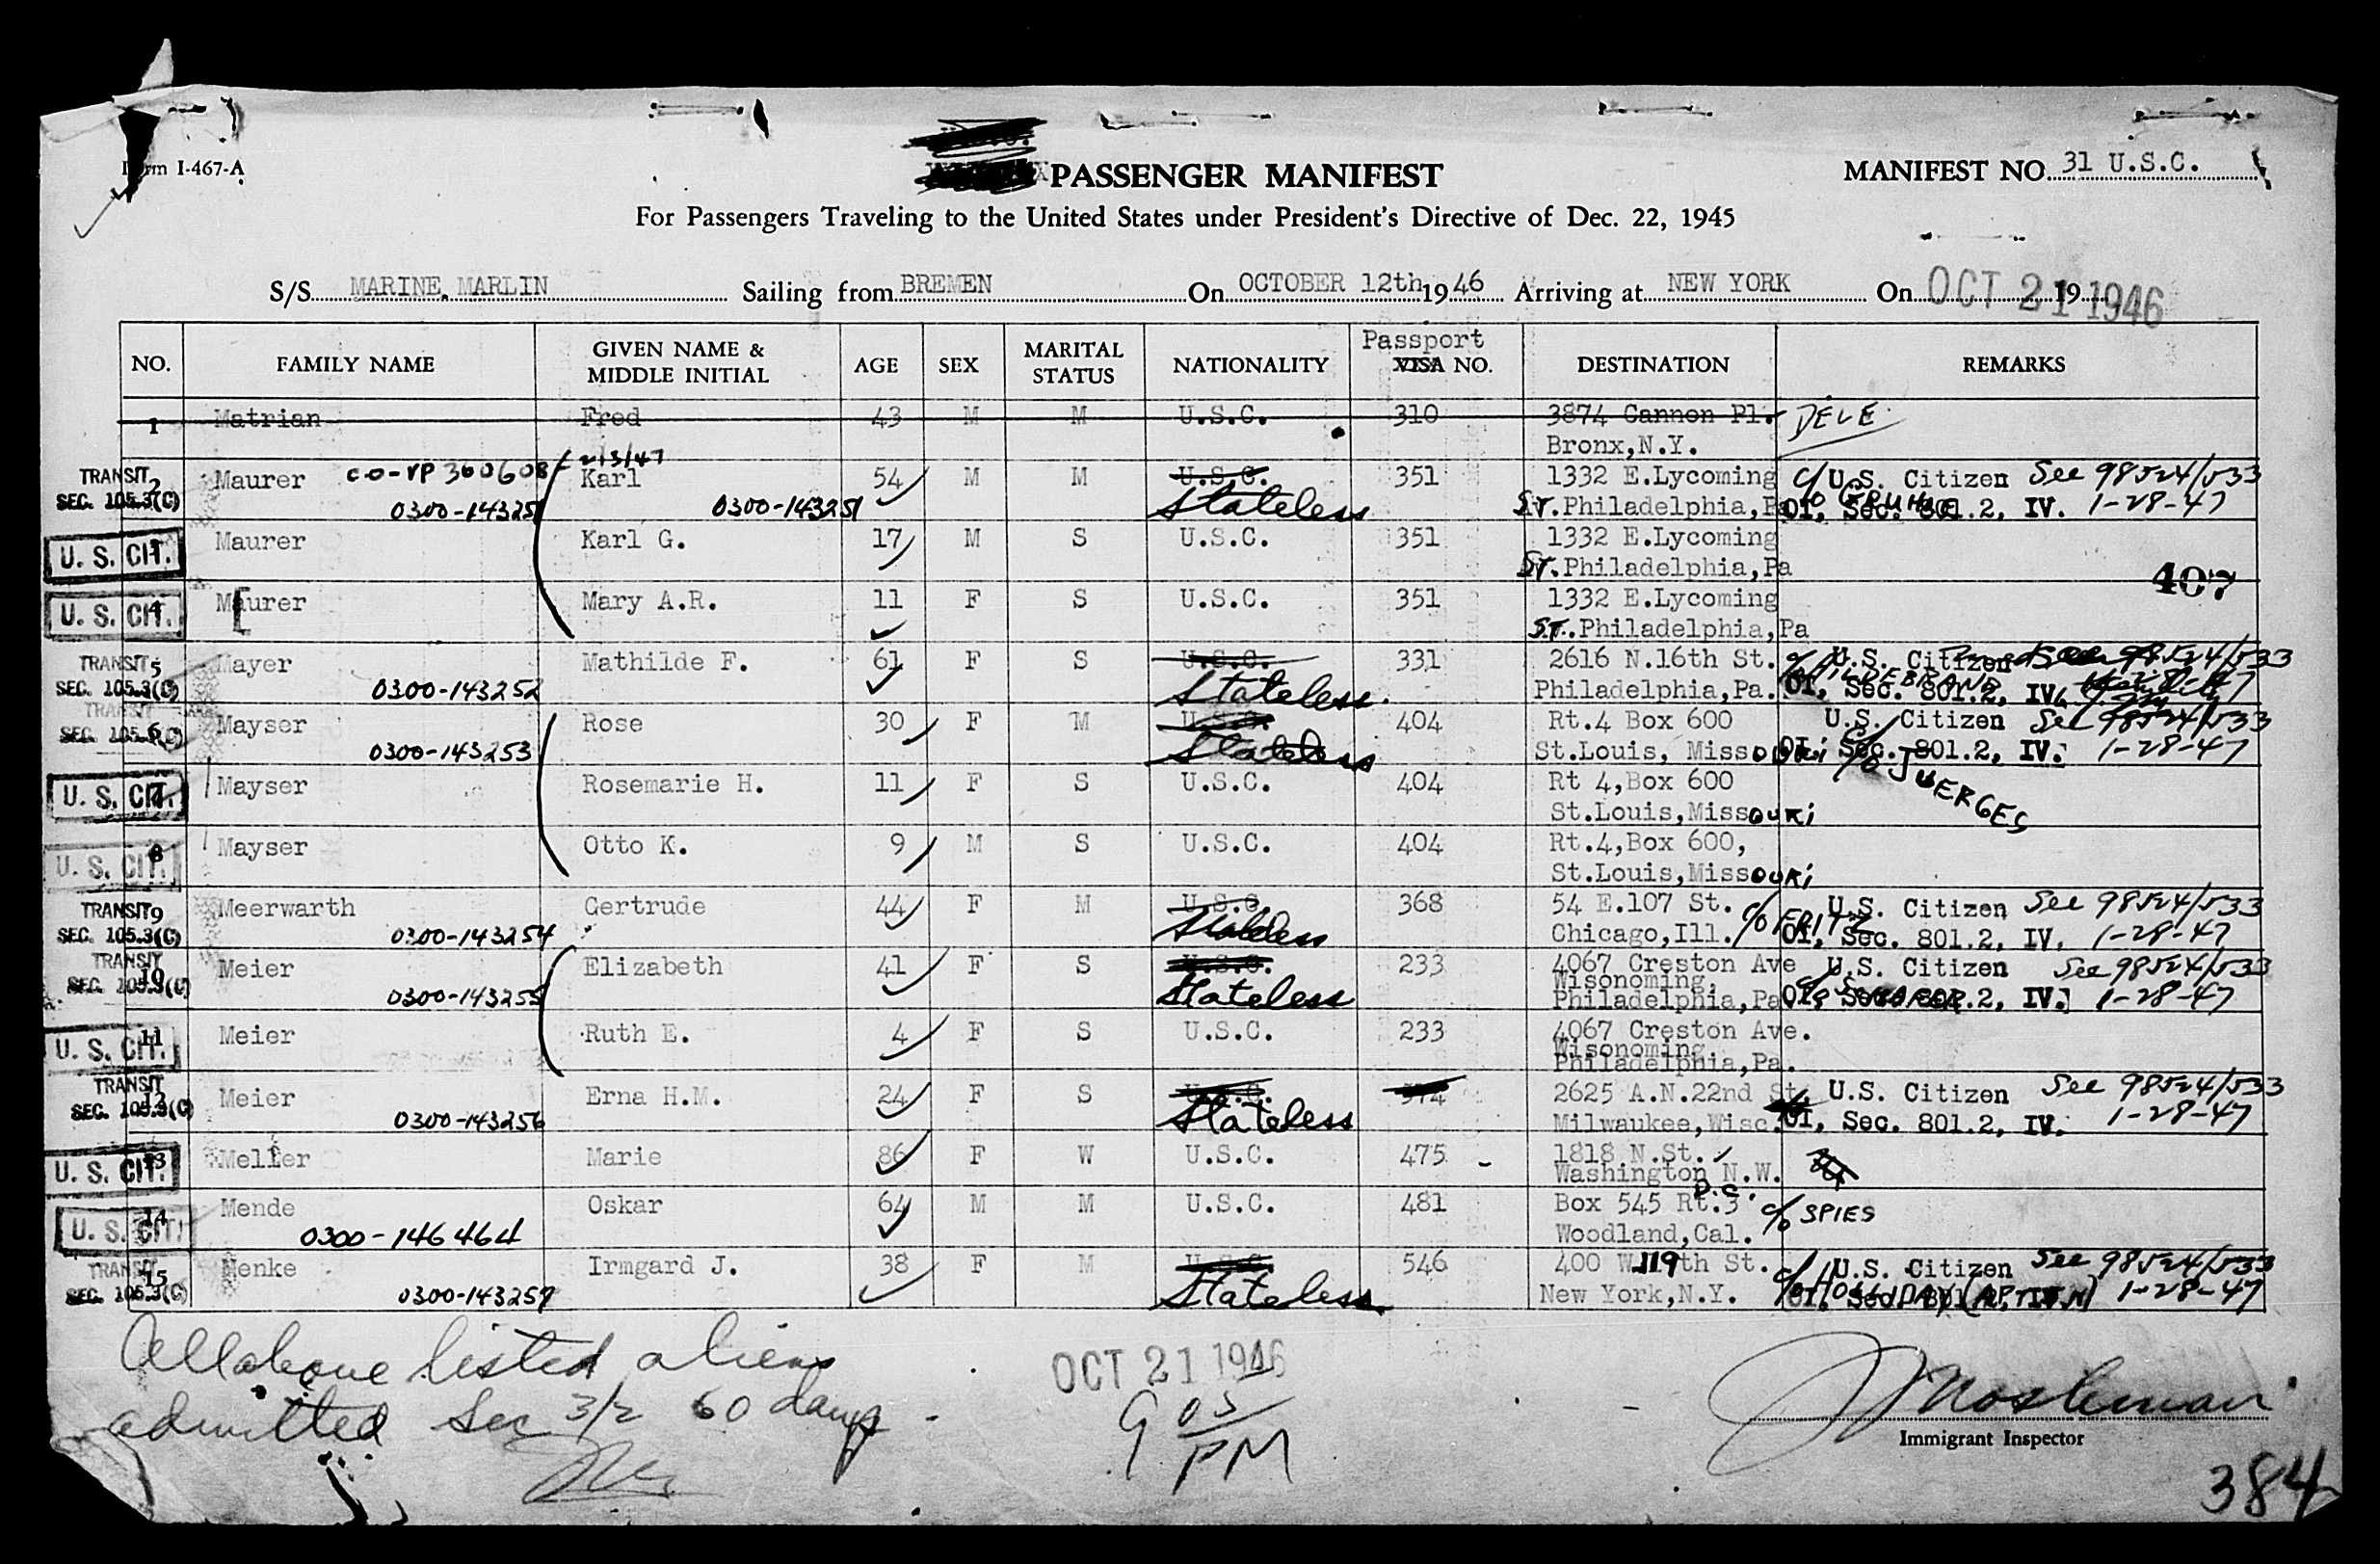 Form I-467-A
PASSENGER MANIFEST
MANIFEST NO. 31 U.S.C.
For Passengers Traveling to the United States under President's Directive of Dec. 22, 1945
S/S MARINE MARLIN Sailing from BREMEN On OCTOBER 12th 1946 Arriving at NEW YORK On OCT 21 1946 19
Passport
NO. FAMILY NAME GIVEN NAME & MIDDLE INITIAL AGE SEX MARITAL STATUS NATIONALITY VISA NO. DESTINATION REMARKS
1 Matrian Fred 43 M M U.S.C. 310 3874 Cannon Pl. DELE
Bronx,N.Y.
2/3/47
TRANSIT 2 Maurer CO-VP 360608 Karl 54 M M U.S.C. 351 1332 E.Lycoming c/o U.S. Citizen See 98524/533
SEC. 105.3(C) 0300-143251 0300-143251 Stateless St.Philadelphia,Pa GRUHLE OI, Sec. 801.2, IV. 1-28-47
U. S. CIT. 3 Maurer Karl G. 17 M S U.S.C. 351 1332 E.Lycoming
St.Philadelphia,Pa
407
U. S. CIT. 4 Maurer Mary A.R. 11 F S U.S.C. 351 1332 E.Lycoming
ST.Philadelphia,Pa
TRANSIT 5 Mayer Mathilde F. 61 F S U.S.C. 331 2616 N.16th St. c/o U.S. Citizen See 98524/533
SEC. 105.3(C) 0300-143252 Stateless. Philadelphia,Pa. HILDEBRAND OI, Sec. 801.2, IV.
TRANSIT 6 Mayser Rose 30 F M U.S.C. 404 Rt.4 Box 600 U.S. Citizen See 98524/533
SEC. 105.3(C) 0300-143253 Stateless St.Louis, Missouri OI, Sec. 801.2, IV. 1-28-47
c/o JUERGES
U. S. CIT. 7 Mayser Rosemarie H. 11 F S U.S.C. 404 Rt 4,Box 600
St.Louis,Missouri
U. S. CIT. 8 Mayser Otto K. 9 M S U.S.C. 404 Rt.4,Box 600,
St.Louis,Missouri
TRANSIT 9 Meerwarth Gertrude 44 F M U.S.C 368 54 E.107 St. c/o FRITZ U.S. Citizen See 98524/533
SEC. 105.3(C) 0300-143254 Stateless Chicago,Ill. OI, Sec. 801.2, IV. 1-28-47
TRANSIT 10 Meier Elizabeth 41 F S U.S.C. 233 4067 Creston Ave U.S. Citizen See 98524/533
Wisonoming,
SEC. 105.3(C) 0300-143255 Stateless Philadelphia,Pa OI, Sec. 801.2, IV. 1-28-47
U. S. CIT. 11 Meier Ruth E. 4 F S U.S.C. 233 4067 Creston Ave.
Wisonoming
Philadelphia,Pa.
TRANSIT 12 Meier Erna H.M. 24 F S U.S.C. 2625 A.N.22nd St. U.S. Citizen See 98524/533
SEC. 105.3(C) 0300-143256 Stateless Milwaukee,Wisc. OI, Sec. 801.2, IV. 1-28-47
U. S. CIT. 13 Meller Marie 86 F W U.S.C. 475 1818 N.St.
Washington N.W.
D.C.
U. S. CIT. 14 Mende Oskar 64 M M U.S.C. 481 Box 545 Rt.3 c/o SPIES
0300-146464 Woodland,Cal.
TRANSIT 15 Menke Irmgard J. 38 F M U.S.C. 546 400 W 119th St. c/o U.S. Citizen See 98524/533
SEC. 105.3(C) 0300-143257 Stateless New York,N.Y. HOLLIDAY OI, Sec. 801.2, IV. 1-28-47
All above listed aliens
admitted Sec 3/2 60 days -
OCT 21 1946
9 05 PM
Immigrant Inspector
384